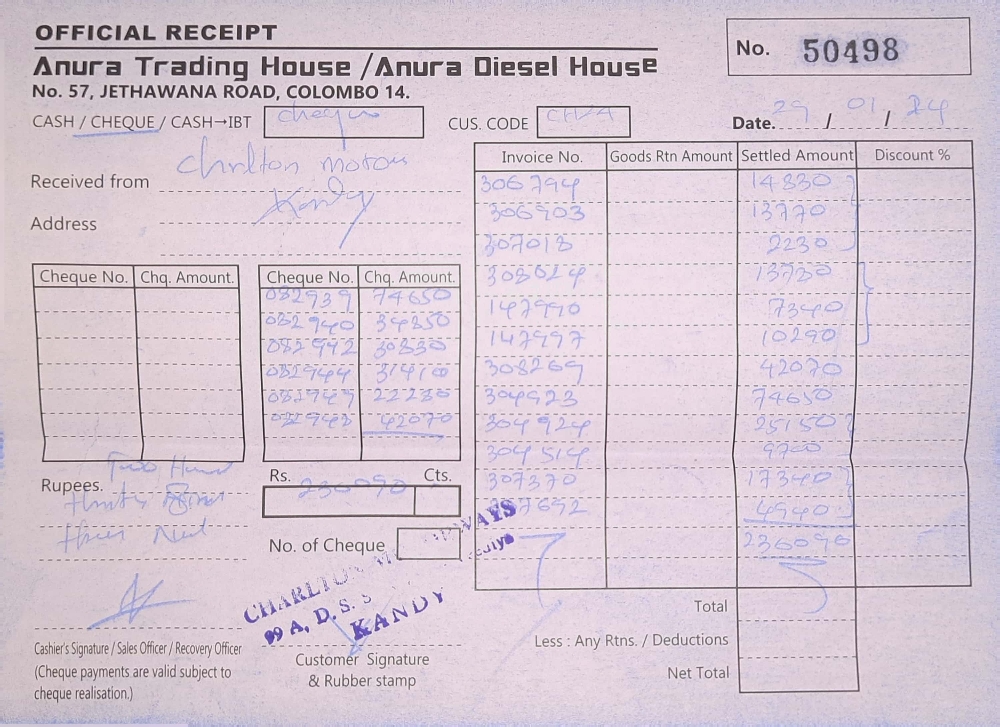 OFFICIAL RECEIPT
No. 50498
Anura Trading House /Anura Diesel House
No. 57, JETHAWANA ROAD, COLOMBO 14.
CASH / CHEQUE / CASH→IBT cheque
CUS. CODE
Date. 29 / 01 / 24
Received from Charlton motors
Address Kandy
Invoice No. Goods Rtn Amount Settled Amount Discount %
306794 14830
306903 13770
307018 2230
308024 13730
147990 7340
147997 10290
308269 42070
304923 74650
304924 25150
304514 9700
307370 17340
7692 4940
236090
Cheque No. Chq. Amount. Cheque No. Chq. Amount.
082939 74650
082940 34850
082942 30830
082944 31410
22230
082948 42070
Rupees. Two
Rs. Cts.
236090
No. of Cheque
CHARLTON
99 A, D. S. S
KANDY
Total
Less : Any Rtns. / Deductions
Net Total
Cashier's Signature / Sales Officer / Recovery Officer
(Cheque payments are valid subject to
cheque realisation.)
Customer Signature
& Rubber stamp